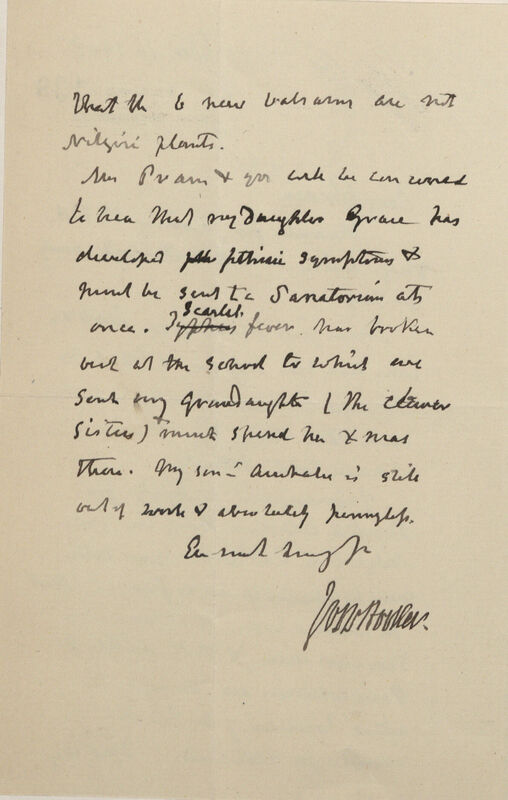 that the 6 new balsams are not
Nilgiri plants.
Mrs Prain & you will be concerned
to hear that my Daughter Grace has
developed pthisic symptoms &
must be sent to a Sanatorium at
once. Typhus Scarlet fever has broken
out at the school to which we
sent my GrandDaughter (the
sisters) must spend her Xmas
there. My son in Australia is still
out of work & absolutely pennyless.
Ev
Jos D Hooker.